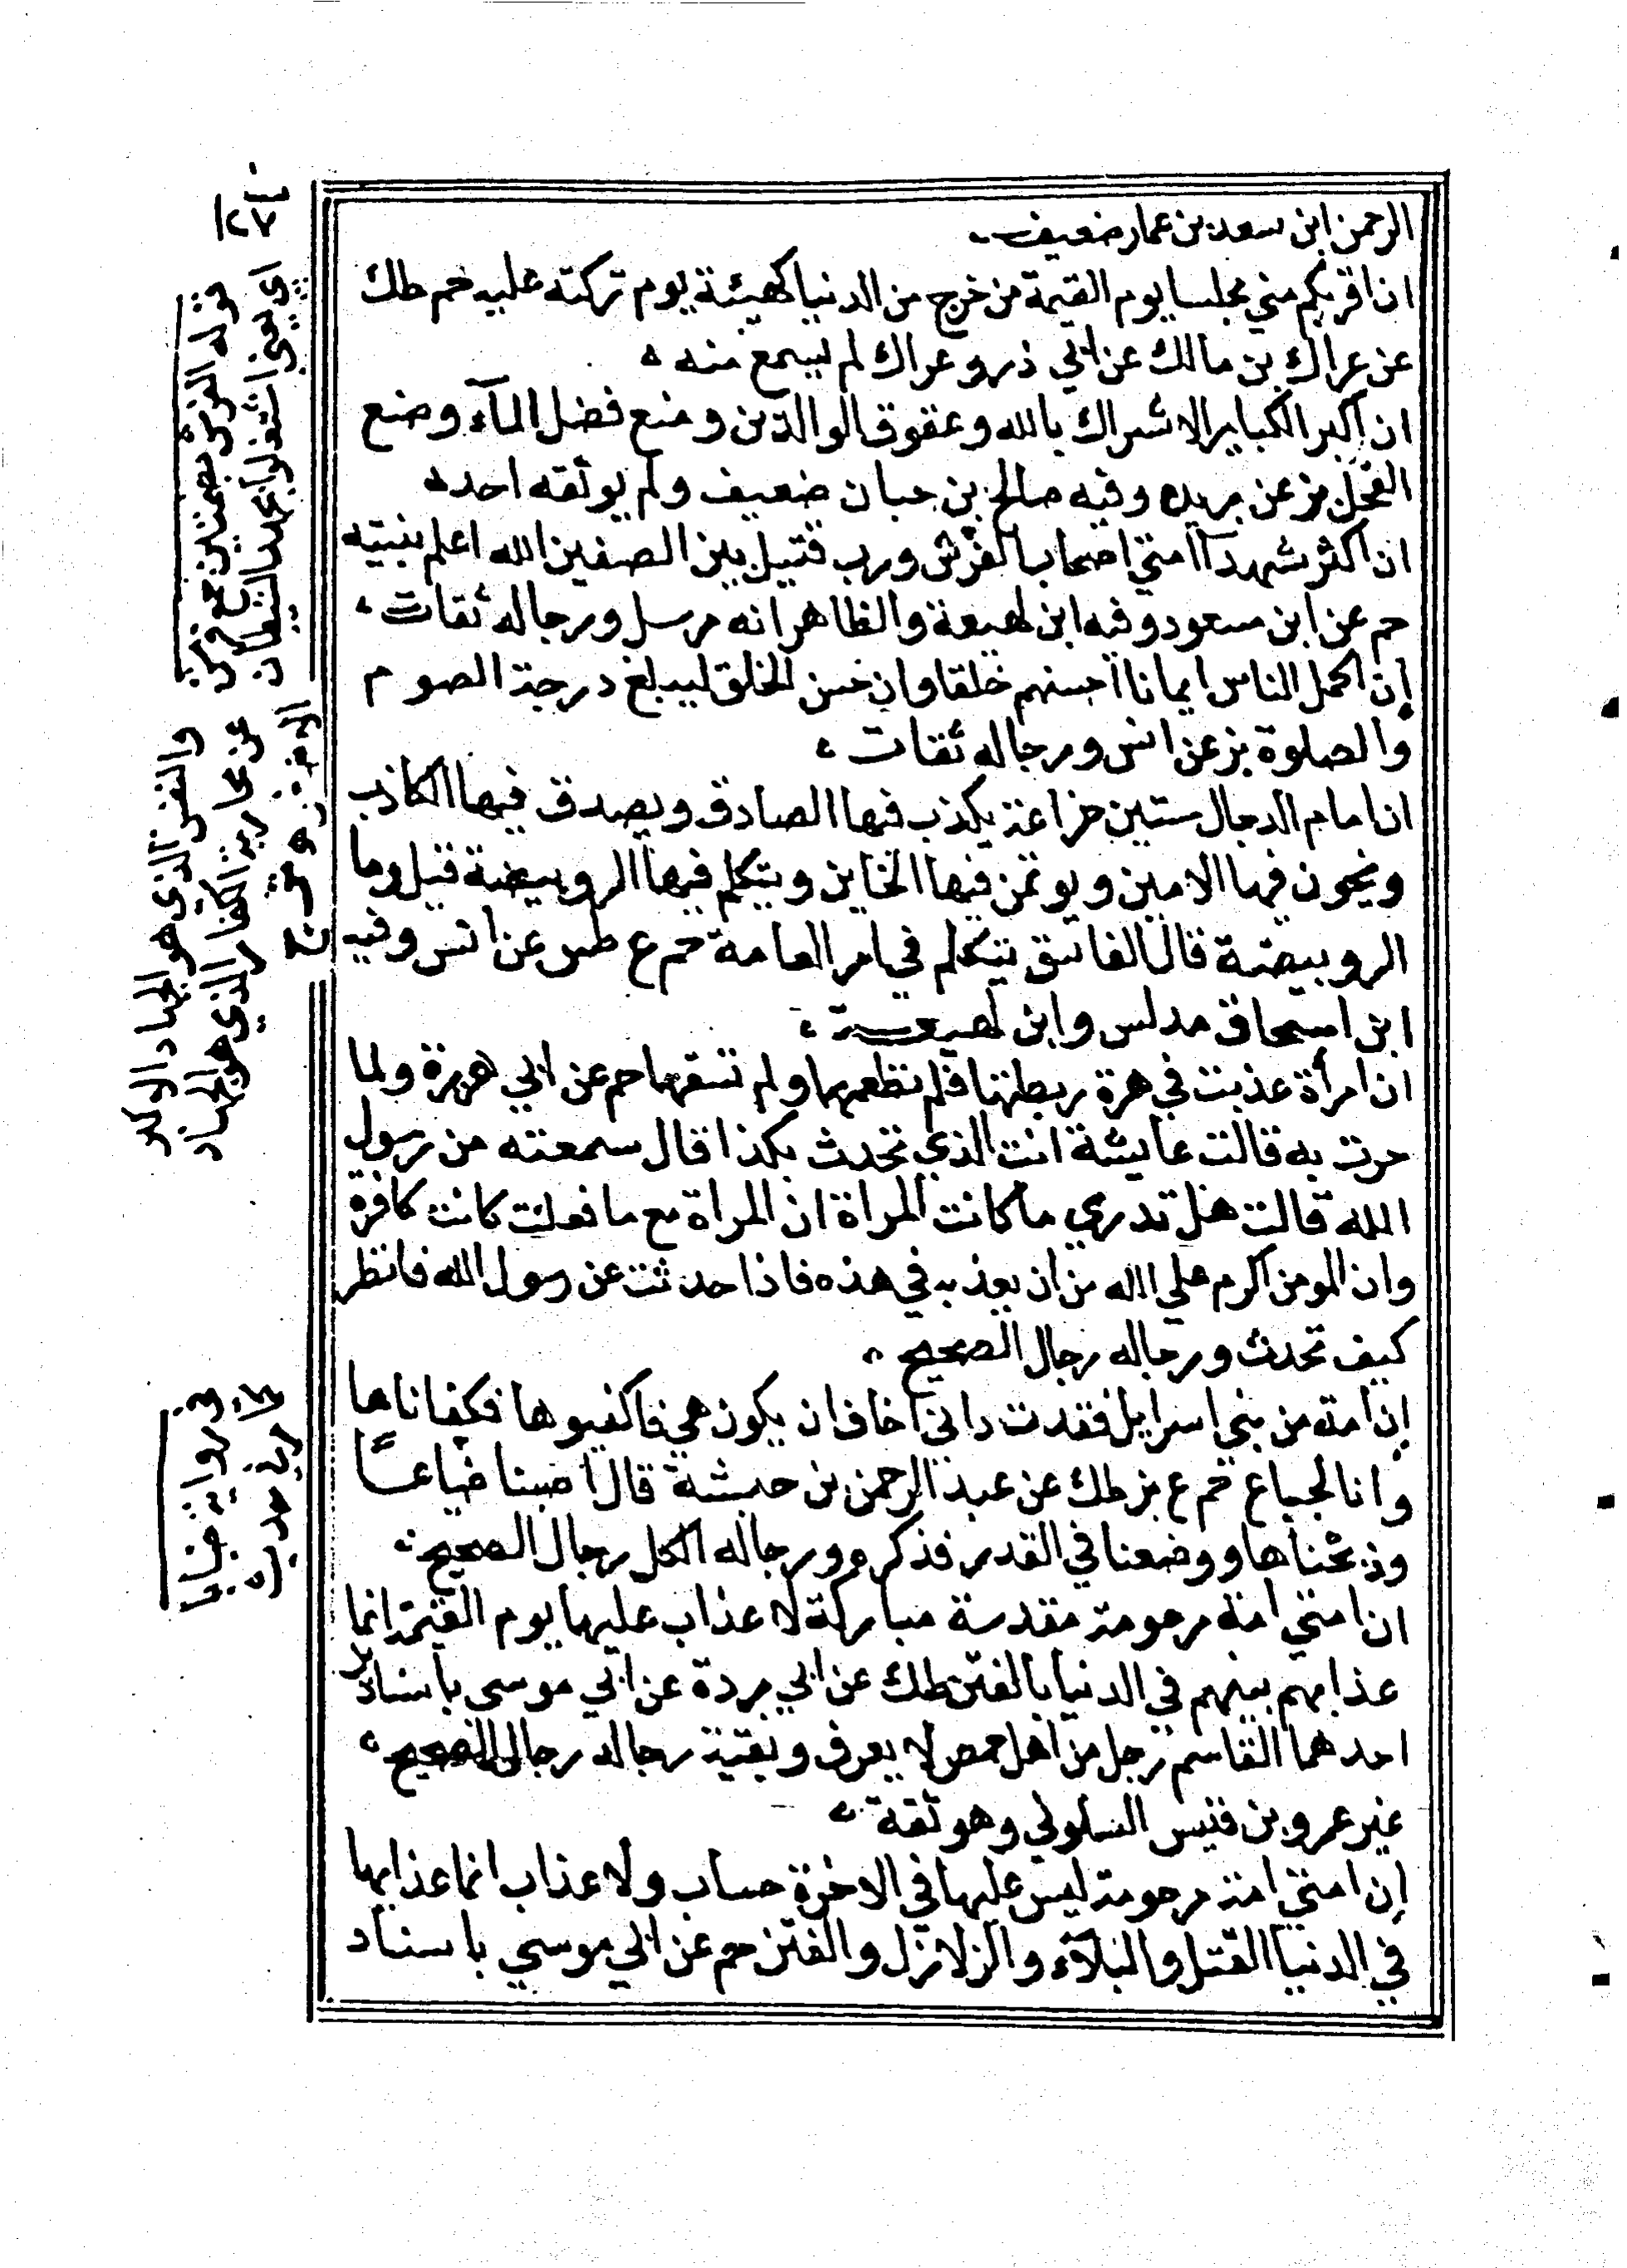 الرحمن ابن سعد بن عمار ضعيف
ان اقربكم مني مجلسا يوم القيمة من خرج من الدنيا كهيئة يوم تركته عليه حم طك
عن عراك بن مالك عن ابي ذر وعراك لم يسمع منه
ان اكبر الكباير الاشراك بالله وعقوق الوالدين ومنع فضل المآء ومنع
الفحل بز عن بريده وفيه صالح بن حبان ضعيف ولم يوثقه احد
ان اكثر شهدآ امتي اصحاب الفرش ورب قتيل بين الصفين الله اعلم بنيته
حم عن ابن مسعود وفيه ابن لهيعة والظاهر انه مرسل ورجاله ثقات
إن اكمل الناس ايمانا احسنهم خلقا وان حسن الخلق ليبلغ درجة الصوم
والصلوة بز عن انس ورجاله ثقات
ان امام الدجال ستين خزاعة يكذب فيها الصادق ويصدق فيها الكاذب
ويخون فيها الامين ويوتمن فيها الخاين ويتكلم فيها الرويبيضة قيل وما
الرويبيضة قال الفاسق يتكلم في امر العامة حم ع طس عن انس وفيه
ابن اسحاق مدلس وابن لهيعة
ان امرأة عذبت في هرة ربطتها فلم تطعمها ولم تسقها حم عن ابي هريرة ولما
حرت به قالت عايشة انت الذي تحدث بكذا قال سمعته من رسول
الله قالت هل تدري ما كانت المراة ان المراة مع ما فعلت كانت كافرة
وان المومن اكرم علي الله من ان يعذبه في هذه فاذا حدثت عن رسول الله فانظر
كيف تحدث ورجاله رجال الصحيح
إن امة من بني اسرايل فقدت واني اخاف ان يكون هي فاكفيوها فكفاناها
وانا لجياع حم ع بز طك عن عبد الرحمن بن حسنة قال اصبنا ضباعا
وذبحناها ووضعنا في القدر فذكره ورجاله الكل رجال الصحيح
ان امتي امة مرحومة مقدسة مباركة لا عذاب عليها يوم القيمة انما
عذابهم بينهم في الدنيا بالفتن طك عن ابي بردة عن ابي موسى باسناد
احدهما القاسم رجل من اهل حمص لا يعرف وبقية رجاله رجال الصحيح
غير عمرو بن قيس السلولي وهو ثقة
إن امتي امة مرحومة ليس عليها في الاخرة حساب ولا عذاب انما عذابها
في الدنيا القتل والبلآء والزلازل والفتن حم عن ابي موسي باسناد
١٢٧
قوله الفرش بضمتين جمع فرش
والنفس الذي هو الجهاد الاكبر
عن محاربة الكفار الذي هو الجهاد
في رواية ضبابا